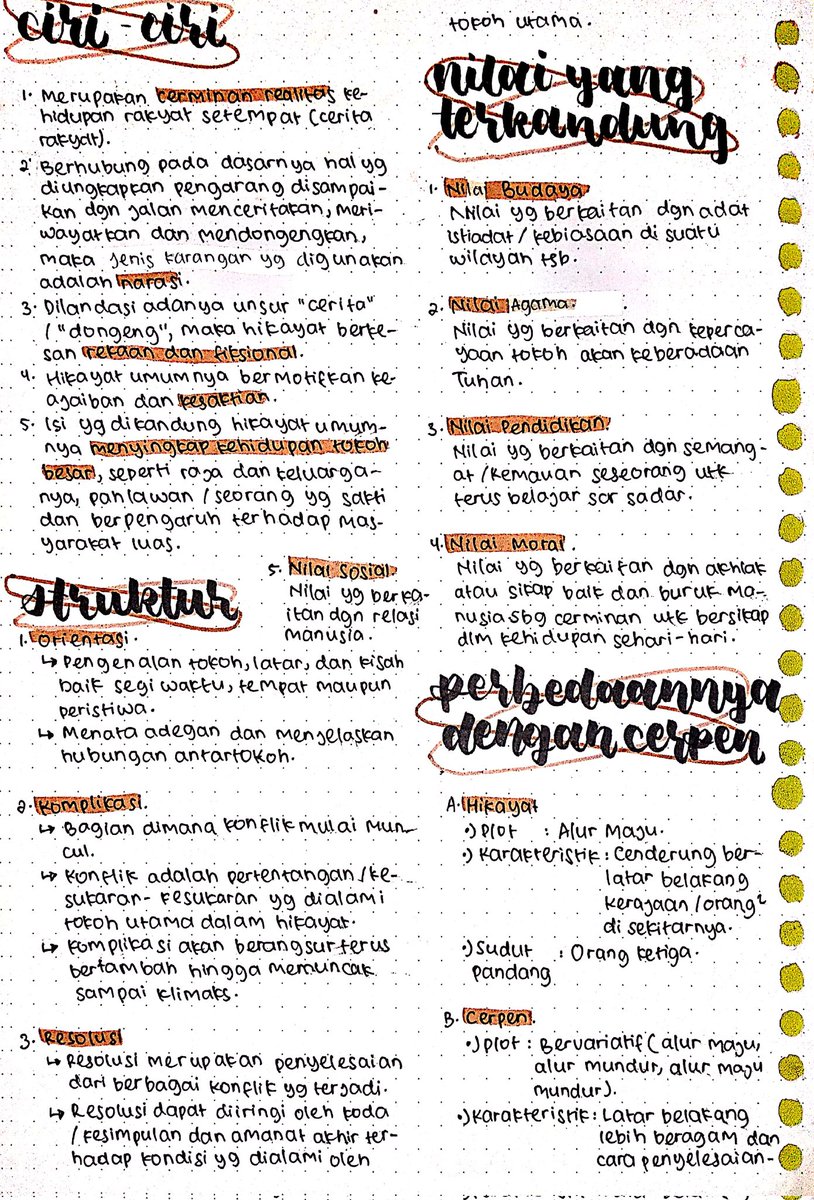 ciri-ciri
1. Merupakan cerminan realitas ke-
hidupan rakyat setempat (cerita
rakyat).
2. Berhubung pada dasarnya hal yg
diungkapkan pengarang disampai-
kan dgn jalan menceritakan, meri-
wayatkan dan mendongengkan,
maka jenis karangan yg digunakan
adalah narasi.
3. Dilandasi adanya unsur "cerita"
/ "dongeng", maka hikayat berke-
san rekaan dan fiksional.
4. Hikayat umumnya bermotifkan ke-
ajaiban dan kesaktian.
5. Isi yg dikandung hikayat umum-
nya menyingkap kehidupan tokoh
besar, seperti raja dan keluarga-
nya, pahlawan / seorang yg sakti
dan berpengaruh terhadap mas-
yarakat luas.
struktur
1. Orientasi.
↳ Pengenalan tokoh, latar, dan kisah
baik segi waktu, tempat maupun
peristiwa.
↳ Menata adegan dan menjelaskan
hubungan antartokoh.
2. Komplikasi.
↳ Bagian dimana konflik mulai mun-
cul.
↳ Konflik adalah pertentangan/ke-
sukaran-kesukaran yg dialami
tokoh utama dalam hikayat.
↳ Komplikasi akan berangsur terus
bertambah hingga memuncak
sampai klimaks.
3. Resolusi
↳ Resolusi merupakan penyelesaian
dari berbagai konflik yg terjadi.
↳ Resolusi dapat diiringi oleh koda
/ kesimpulan dan amanat akhir ter-
hadap kondisi yg dialami oleh
tokoh utama.
nilai yang
terkandung
1. Nilai Budaya
Nilai yg berkaitan dgn adat
istiadat / kebiasaan di suatu
wilayah tsb.
2. Nilai Agama.
Nilai yg berkaitan dgn keperca-
yaan tokoh akan keberadaan
Tuhan.
3. Nilai Pendidikan.
Nilai yg berkaitan dgn semang-
at / kemauan seseorang utk
terus belajar scr sadar.
4. Nilai Moral.
Nilai yg berkaitan dgn akhlak
atau sikap baik dan buruk ma-
nusia sbg cerminan utk bersikap
dlm kehidupan sehari-hari.
5. Nilai Sosial
Nilai yg berka-
itan dgn relasi
manusia.
perbedaannya
dengan cerpen
A. Hikayat
•) Plot : Alur Maju.
•) Karakteristik : Cenderung ber-
latar belakang
kerajaan / orang²
di sekitarnya.
•) Sudut : Orang ketiga.
pandang
B. Cerpen.
•) Plot : Bervariatif ( alur maju,
alur mundur, alur maju
mundur).
•) Karakteristik : Latar belakang
lebih beragam dan
cara penyelesaian-